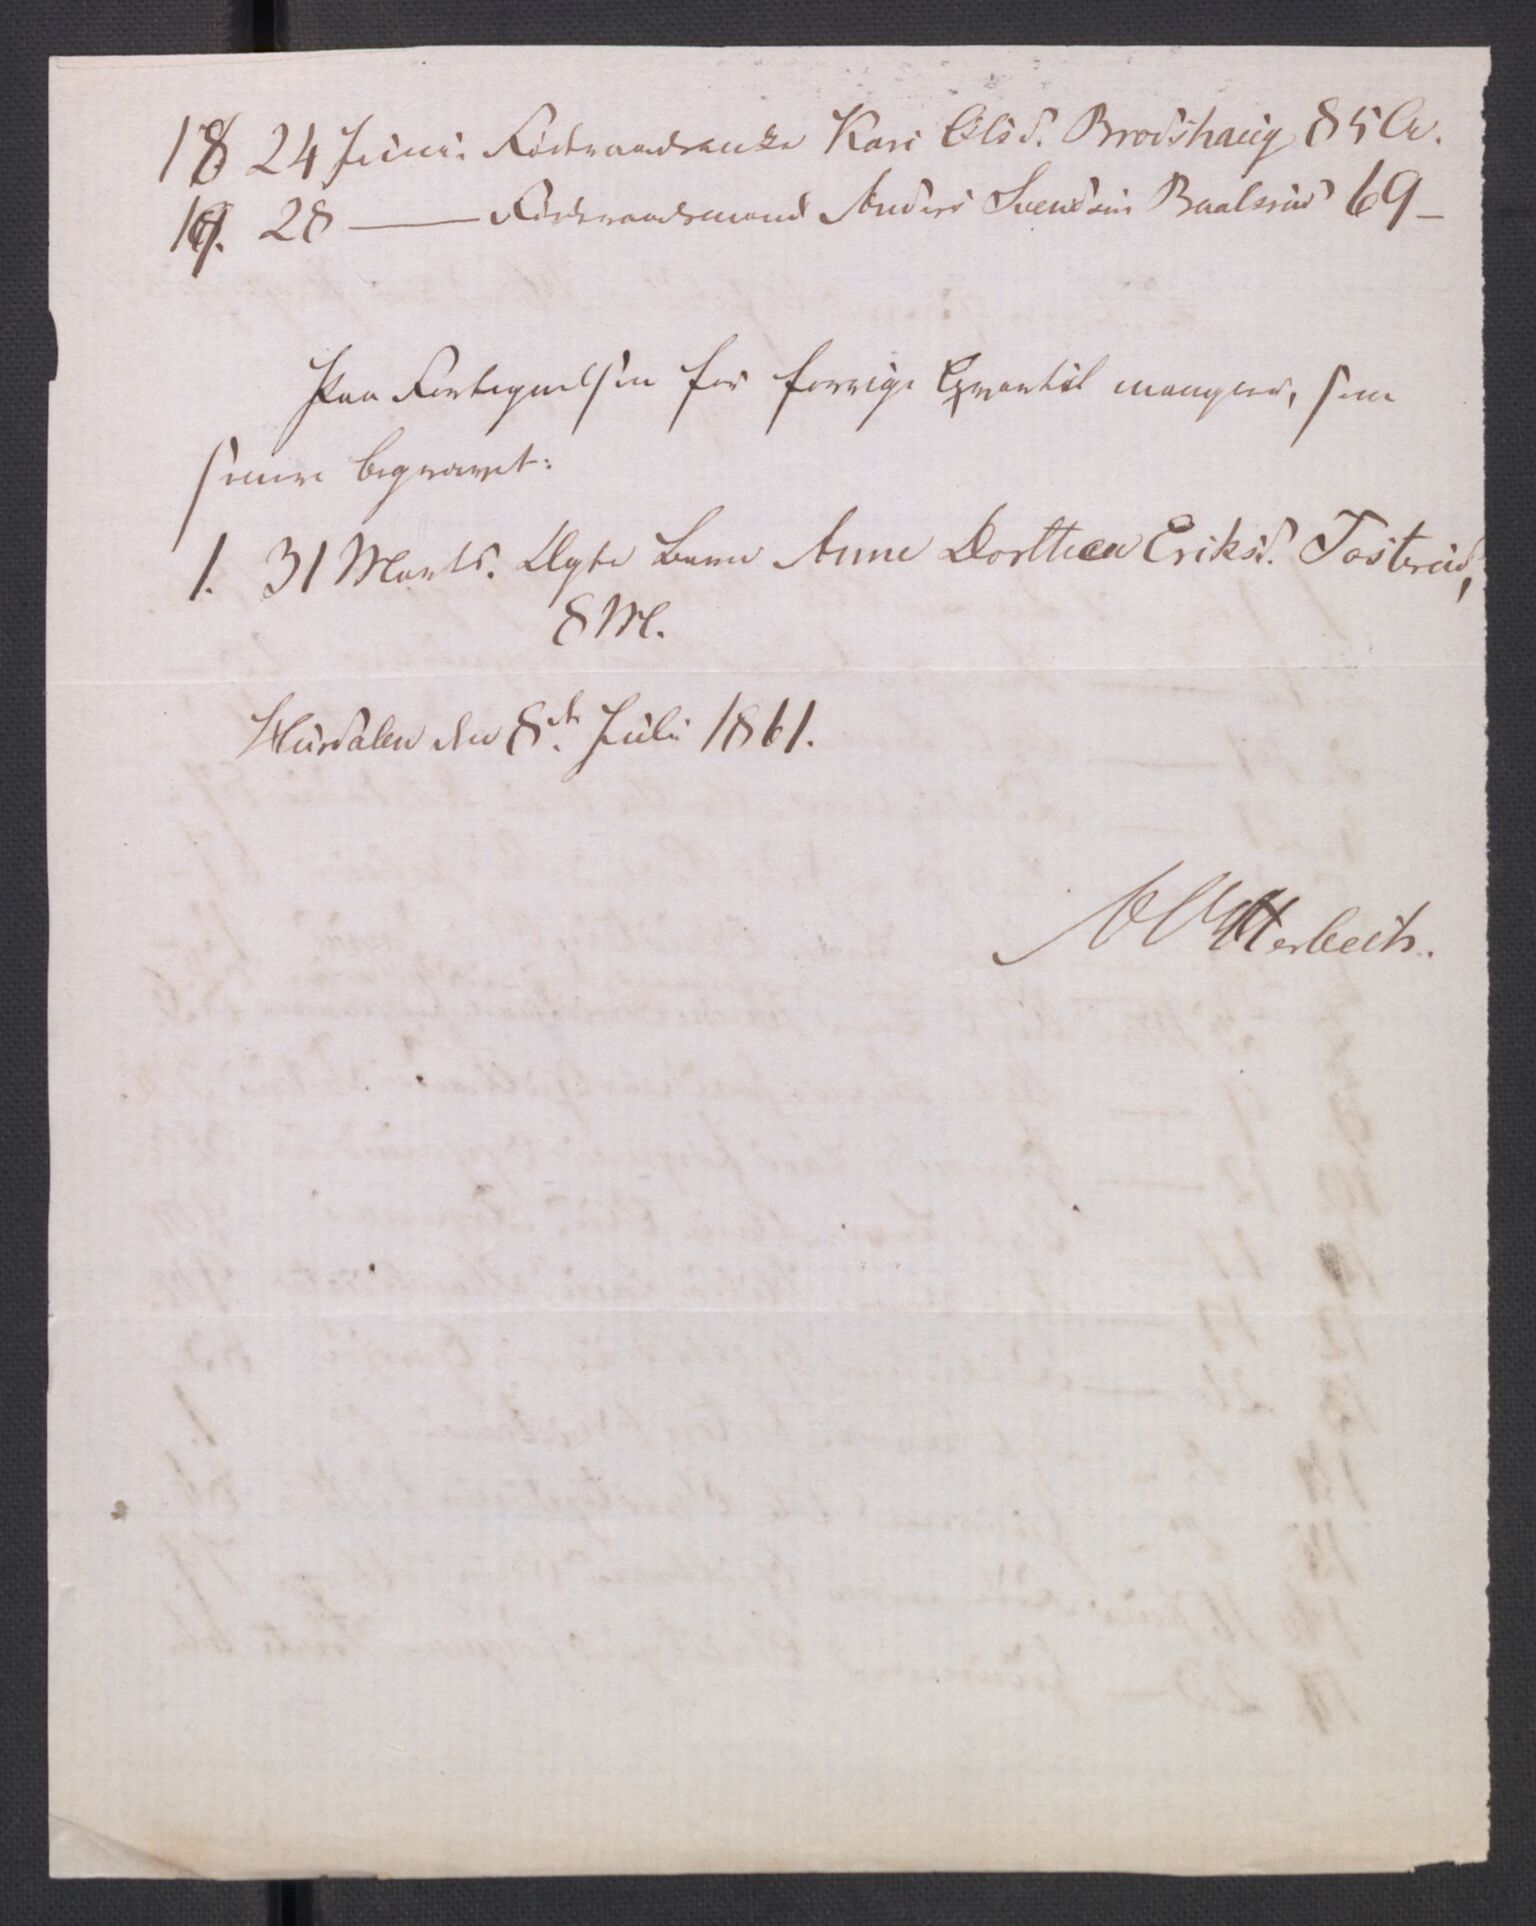 18 24 Juni. Føderaadsenke Kari Olsd. Brodshaug 85 Ar.
19. 28 — Føderaadsmand Anders Svendsen Baalsrud 69 —
Paa Fortegnelsen for forrige Qvartal mangler, som
senere begravet:
1. 31 Marts. Ægte Barn Anne Dorthea Eriksd. Tosterud,
8 M.
Hurdalen den 8de Juli 1861.